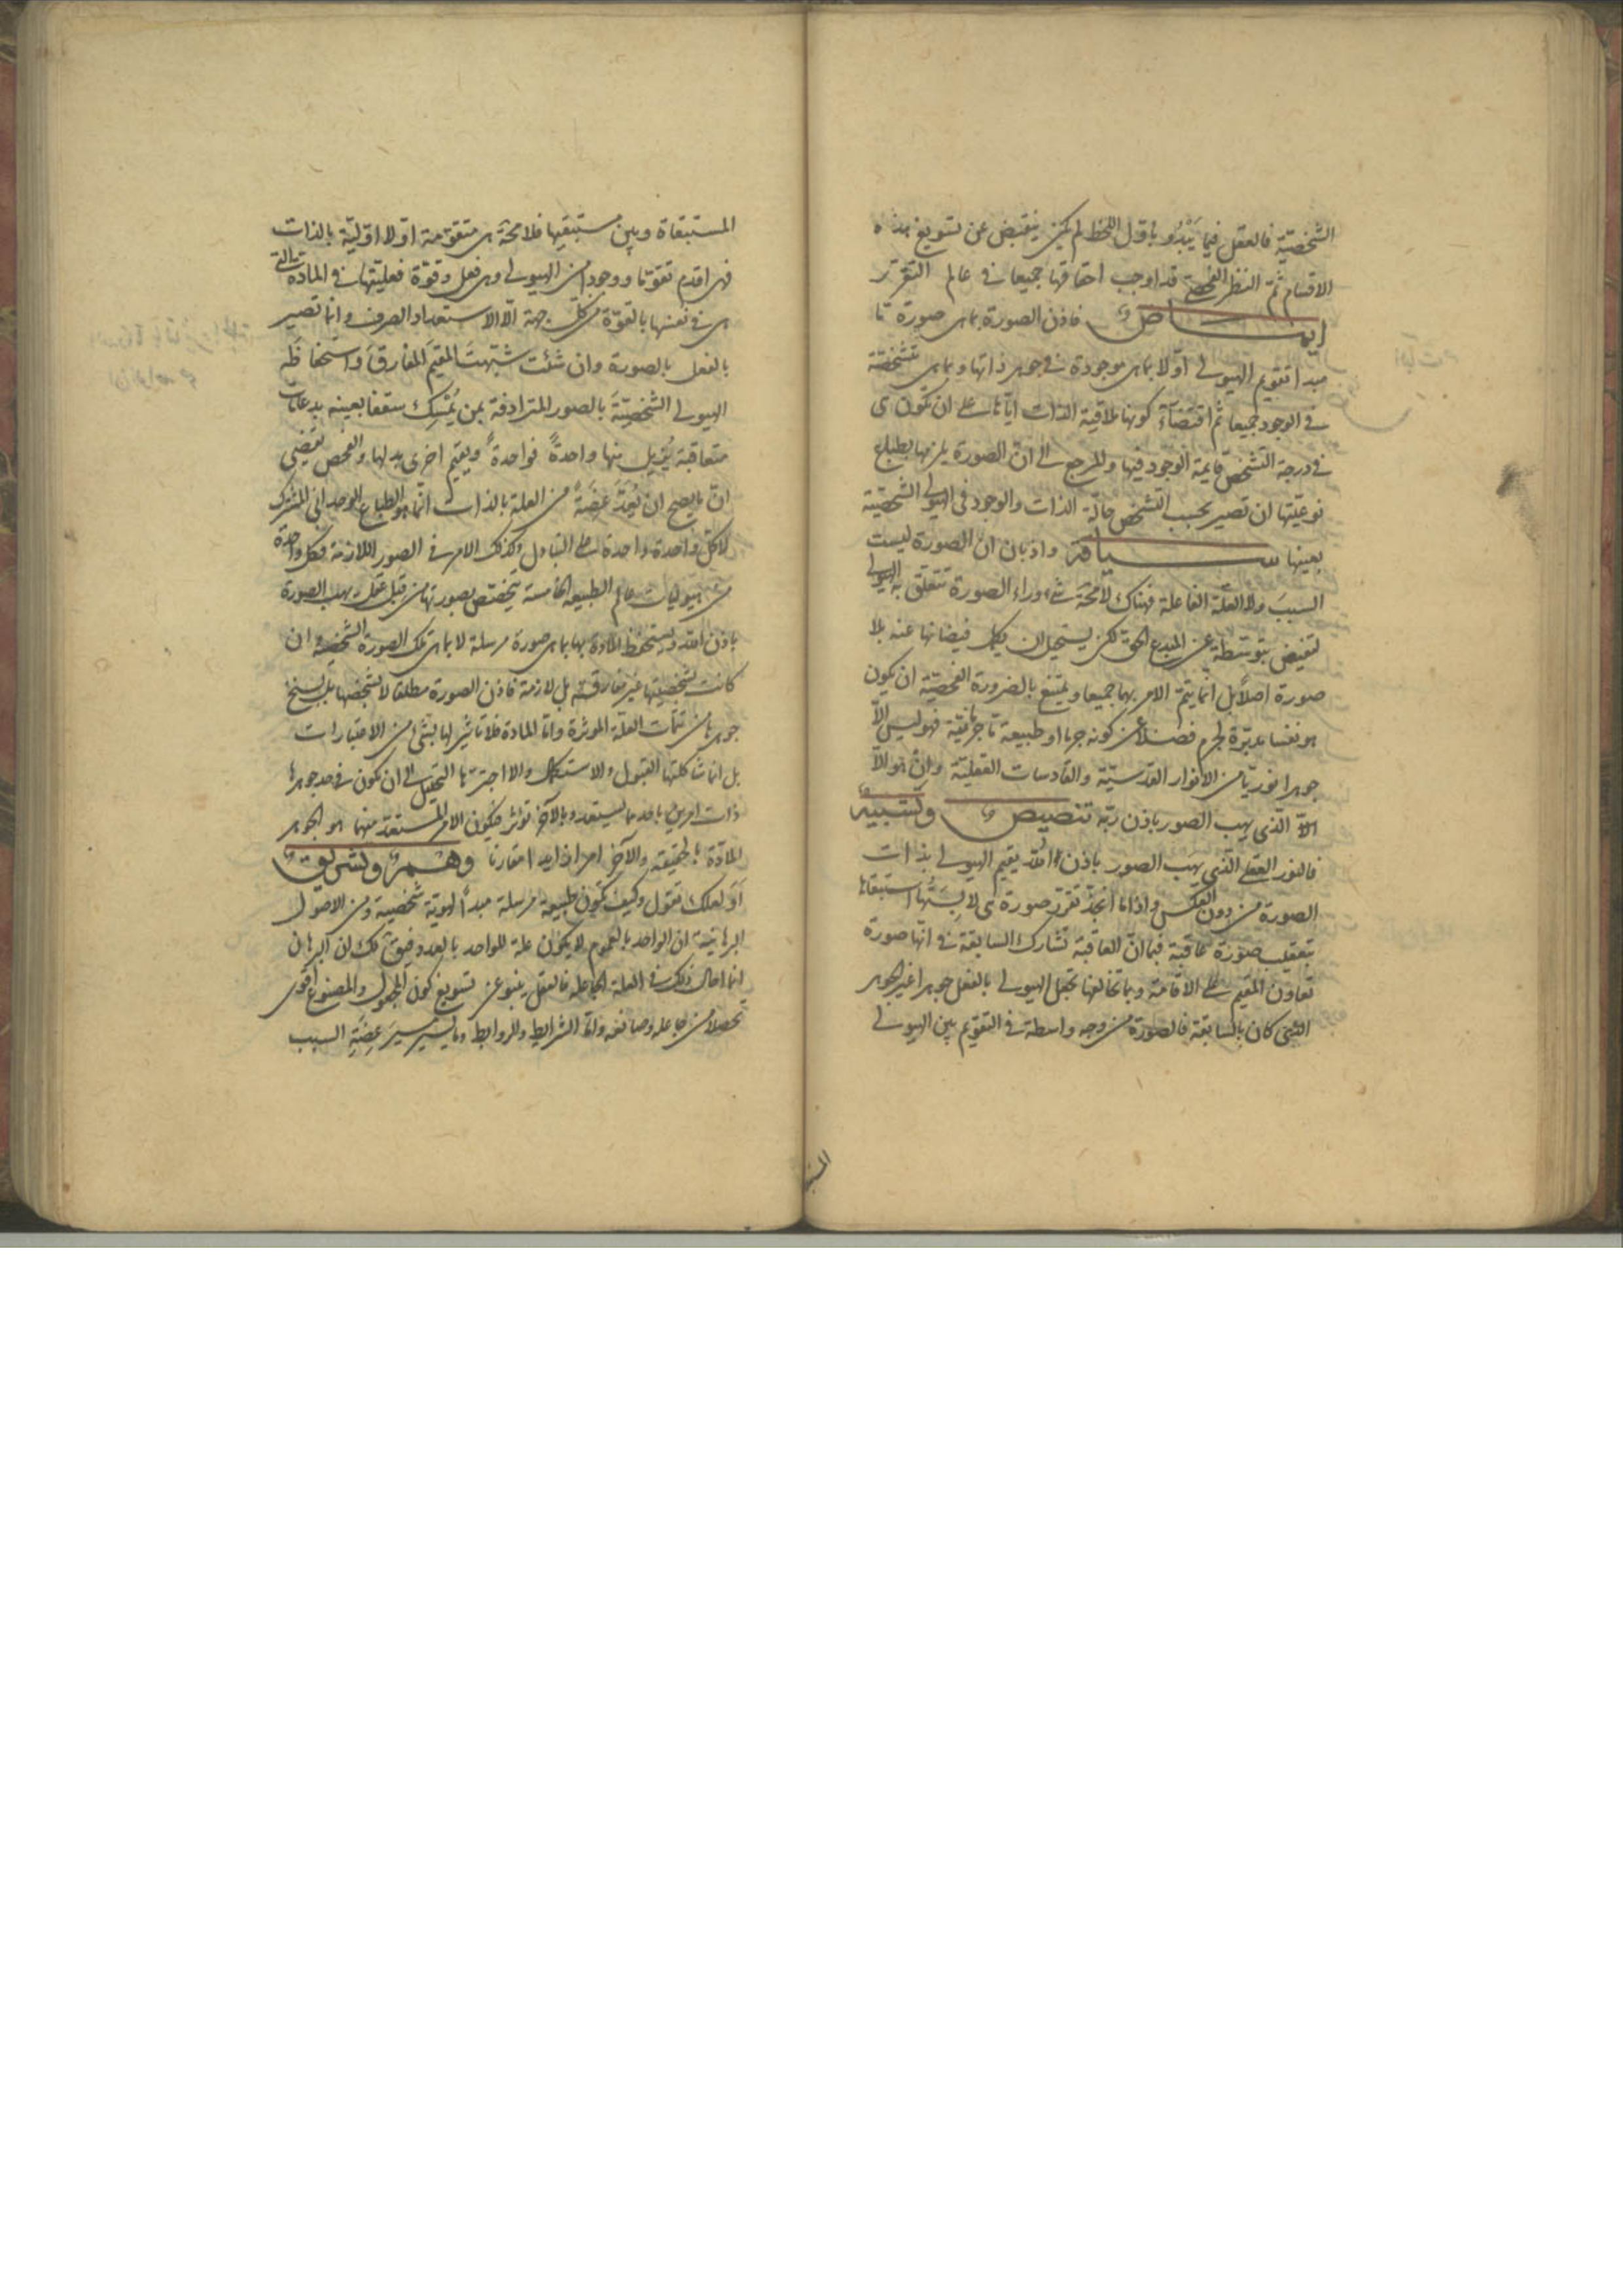 الشخصيّة فالعقل فيما يَبْدُو باوّل اللحظ لم يكن ينقبض عن تسويغ هذه
الاقسام ثمّ النظر الفحصيّ قد اوجب احقاقها جميعا في عالم التقرّر
ايماض فاذن الصورة بما هي صورة ما
مبدا تقويم الهيولى اوّلا بما هي موجودة في جوهر ذاتها وبما هي متشخّصة
في الوجود جميعا ثم اقتضاءً كونها ملاقية الذات ايّاها على ان تكون هي
في درجة التشخّص قايمة الوجود فيها والمرجع الى انّ الصورة يلزمها بطباع
نوعيّتها ان تصير بحسب التشخّص حالّة الذات والوجود في الهيولى الشخصيّة
بعينها سياقة واذ بان ان الصورة ليست
السببَ ولا العلّة الفاعلة فهناك لا محة شيء وراء الصورة تتعلق به الهيولى
تفيض بتوسّطه عن المبدع الحق لكن يستحيل ان يكمل فيضانها عنه بلا
صورة اصلاً بل انّما يتمّ الامر بهما جميعا ويمتنع بالضرورة الفحصيّة ان يكون
هو نفسا مدبّرة لجرم فضلا عن كونه جرما او طبيعة ما جرمانيّة فهو ليس الّا
جوهرا نوريّا من الانوار القدسيّة والقادسات العقليّة وان هو الّا
الّا الّذي يهب الصور باذن ربّه تنصيص وتنبيه
فالنور العقلي الّذي يهب الصور باذن الله يقيم الهيولى بذات
الصورة من دون العكس واذا ما انجذّ تقرّر صورة هي لابستُها استبقاها
بتعقيب صورة عاقبة فبما انّ العاقبة تشارك السابقة في انها صورة
تعاون المقيم على الاقامة وبما تخالفها تجعل الهيولى بالفعل جوهرا غير الجوهر
الّذي كان بالسابقة فالصورة من وجه واسطة في التقويم بين الهيولى
المستبقاة وبين مستبقيها فلا محة هي متقوّمة اولا اوّليّة بالذات
فهي اقدم تقوّما ووجودا من الهيولى وهي فعل وقوّة فعليّتها في المادّة والمادّة
هي في نفسها بالقوّة من كلّ جهة الّا الاستعداد الصرف وانّما تصير
بالفعل بالصورة وان شئت شبّهتَ المقيمَ المفارقَ واستحفاظَه
الهيولى الشخصيّةَ بالصور المترادفة بمن يُمْسِك سقفا بعينه بدعامات
متعاقبة يُزيل منها واحدةً فواحدةً ويقيم اخرى بدلها والفحص يقضي
انّ ما يصح ان يُعَدّ عِضَةً من العلة بالذات انّما هو الطباع الوحداني المشترك
لا كلّ واحدة واحدة على التبادل وكذلك الامر في الصور اللازمة فكل واحدة
من هيوليات عالم الطبيعة الخامسة يتخصّص بصورتها من قِبَل عقل يهب الصورة
باذن الله ويستحفظ المادة بها بما هي صورة مرسلة لا بما هي تلك الصورة الشخصيّة وان
كانت شخصيّتها غير مفارقة بل لازمة فاذن الصورة مطلقا لا بشخصها بل بسنخ
جوهرها من تتمّات العلّة الموثرة وامّا المادة فلا تاثير لها بشيء من الاعتبارات
بل انما شاكلتها القبول والاستكمال والا اجترّها التحصيل الى ان يكون في حدّ جوهرها
ذات امرين باحدهما يستعد وبالآخر توثر فيكون الامر المستعدّ منهما هو الجوهر
المادّة بالحقيقة والآخر امرا زايدا مقارنا وهم وتشريق
اَوَلعلك تقول وكيف تكون طبيعة مرسلة مبدأً لهويّة شخصية ومن الاصول
البرهانيّة انّ الواحد بالعموم لا يكون علة للواحد بالعدد فيقٰ لك ان البرهان
انما احال ذلك في العلة الجاعلة فالعقل ينبو عن تسويغ كون المجعول والمصنوع اقوى
تحصلا من جاعله وصانعه وامّا الشرايط والروابط وما يسير مسيرَ عِضَةِ السبب